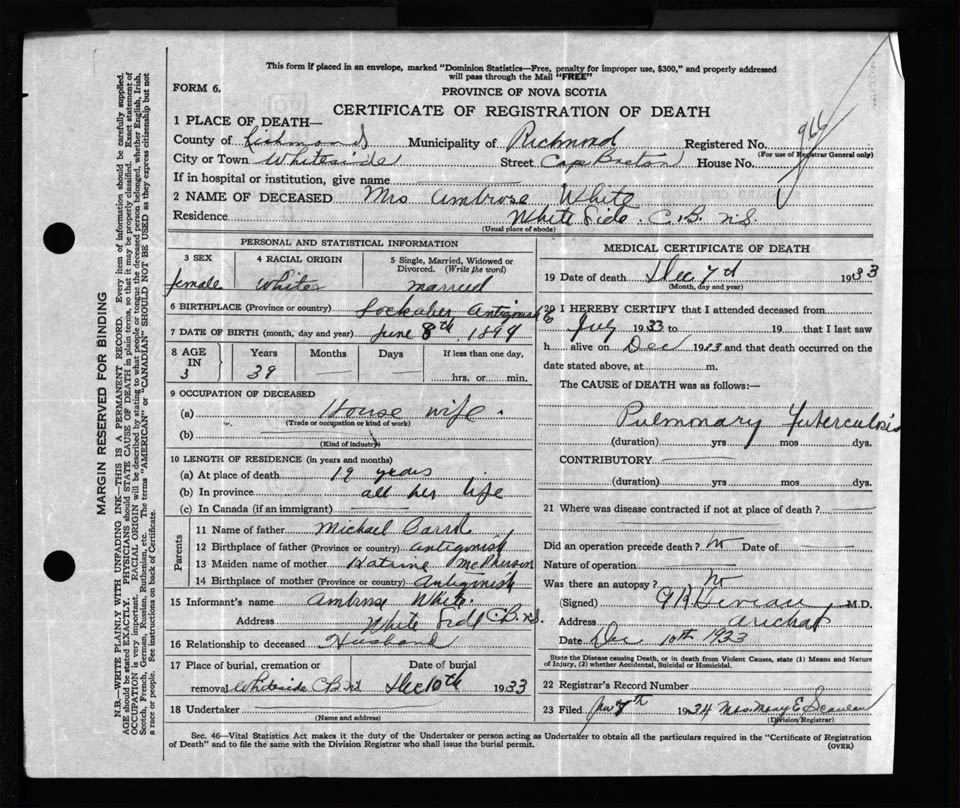 This form if placed in an envelope, marked "Dominion Statistics—Free, penalty for improper use, $300," and properly addressed
will pass through the Mail "FREE"
FORM 6.
PROVINCE OF NOVA SCOTIA
CERTIFICATE OF REGISTRATION OF DEATH
1 PLACE OF DEATH—
County of Richmond Municipality of Richmond Registered No.
(For use of Registrar General only)
City or Town Whiteside Street Cape Breton House No.
If in hospital or institution, give name
2 NAME OF DECEASED Mrs Ambrose White
Residence White Side. C.B. N.S.
(Usual place of abode)
PERSONAL AND STATISTICAL INFORMATION
3 SEX 4 RACIAL ORIGIN 5 Single, Married, Widowed or Divorced. (Write the word)
female White married
6 BIRTHPLACE (Province or country) Lochaber Antigonish
7 DATE OF BIRTH (month, day and year) June 8th, 1894
8 AGE IN Years Months Days If less than one day,
3 39 — — hrs. or min.
9 OCCUPATION OF DECEASED
(a) House wife.
(Trade or occupation or kind of work)
(b)
(Kind of industry)
10 LENGTH OF RESIDENCE (in years and months)
(a) At place of death 19 years
(b) In province all her life
(c) In Canada (if an immigrant)
Parents
11 Name of father Michael
12 Birthplace of father (Province or country) Antigonish
13 Maiden name of mother Katrine McPherson
14 Birthplace of mother (Province or country) Antigonish
15 Informant's name Ambrose White.
Address White Side C.B. N.S.
16 Relationship to deceased Husband
17 Place of burial, cremation or Date of burial
removal Whiteside CB Dec 10th 1933
18 Undertaker
(Name and address)
MEDICAL CERTIFICATE OF DEATH
19 Date of death Dec 7th 1933
(Month, day and year)
20 I HEREBY CERTIFY that I attended deceased from
July 1933 to 19 that I last saw
h alive on Dec 1933 and that death occurred on the
date stated above, at m.
The CAUSE of DEATH was as follows:—
Pulmonary Tuberculosis
(duration) yrs mos dys.
CONTRIBUTORY
(duration) yrs mos dys.
21 Where was disease contracted if not at place of death?
Did an operation precede death? No Date of
Nature of operation
Was there an autopsy? No
(Signed) M.D.
Address Arichat
Date Dec 10th 1933
State the Disease causing Death, or in death from Violent Causes, state (1) Means and Nature
of Injury, (2) whether Accidental, Suicidal or Homicidal.
22 Registrar's Record Number
23 Filed Jan 7th 1934 Mrs. Mary E
(Division Registrar)
Sec. 46—Vital Statistics Act makes it the duty of the Undertaker or person acting as Undertaker to obtain all the particulars required in the "Certificate of Registration
of Death" and to file the same with the Division Registrar who shall issue the burial permit.
(OVER)
MARGIN RESERVED FOR BINDING
N.B.—WRITE PLAINLY WITH UNFADING INK—THIS IS A PERMANENT RECORD. Every item of information should be carefully supplied.
AGE should be stated EXACTLY. PHYSICIANS should STATE CAUSE OF DEATH in plain terms, so that it may be properly classified. Exact statement of
OCCUPATION is very important. RACIAL ORIGIN will be described by stating to what people or tongue the deceased person belonged, whether English, Irish,
Scotch, French, German, Russian, Ruthenian, etc. The terms "AMERICAN" or "CANADIAN" SHOULD NOT BE USED as they express citizenship but not
a race or people. See instructions on back of Certificate.